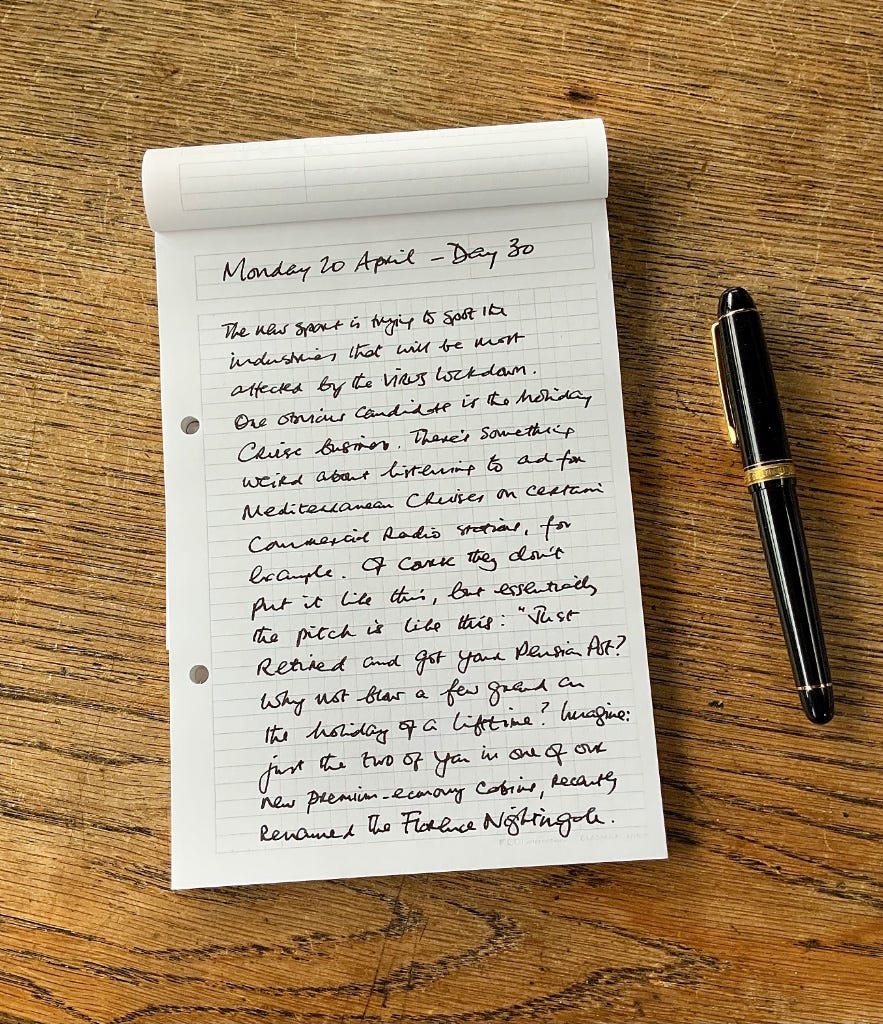 Monday 20 April – Day 30
The new sport is trying to spot the
industries that will be most
affected by the virus lockdown.
One obvious candidate is the holiday
Cruise business. There's something
weird about listening to ad for
Mediterranean Cruises on certain
Commercial Radio stations, for
example. Of course they don't
put it like this, but essentially
the pitch is like this: "Just
Retired and got your Pension Pot?
Why not blow a few grand on
the holiday of a lifetime? Imagine:
just the two of you in one of our
new premium-economy cabins, recently
Renamed The Florence Nightingale.